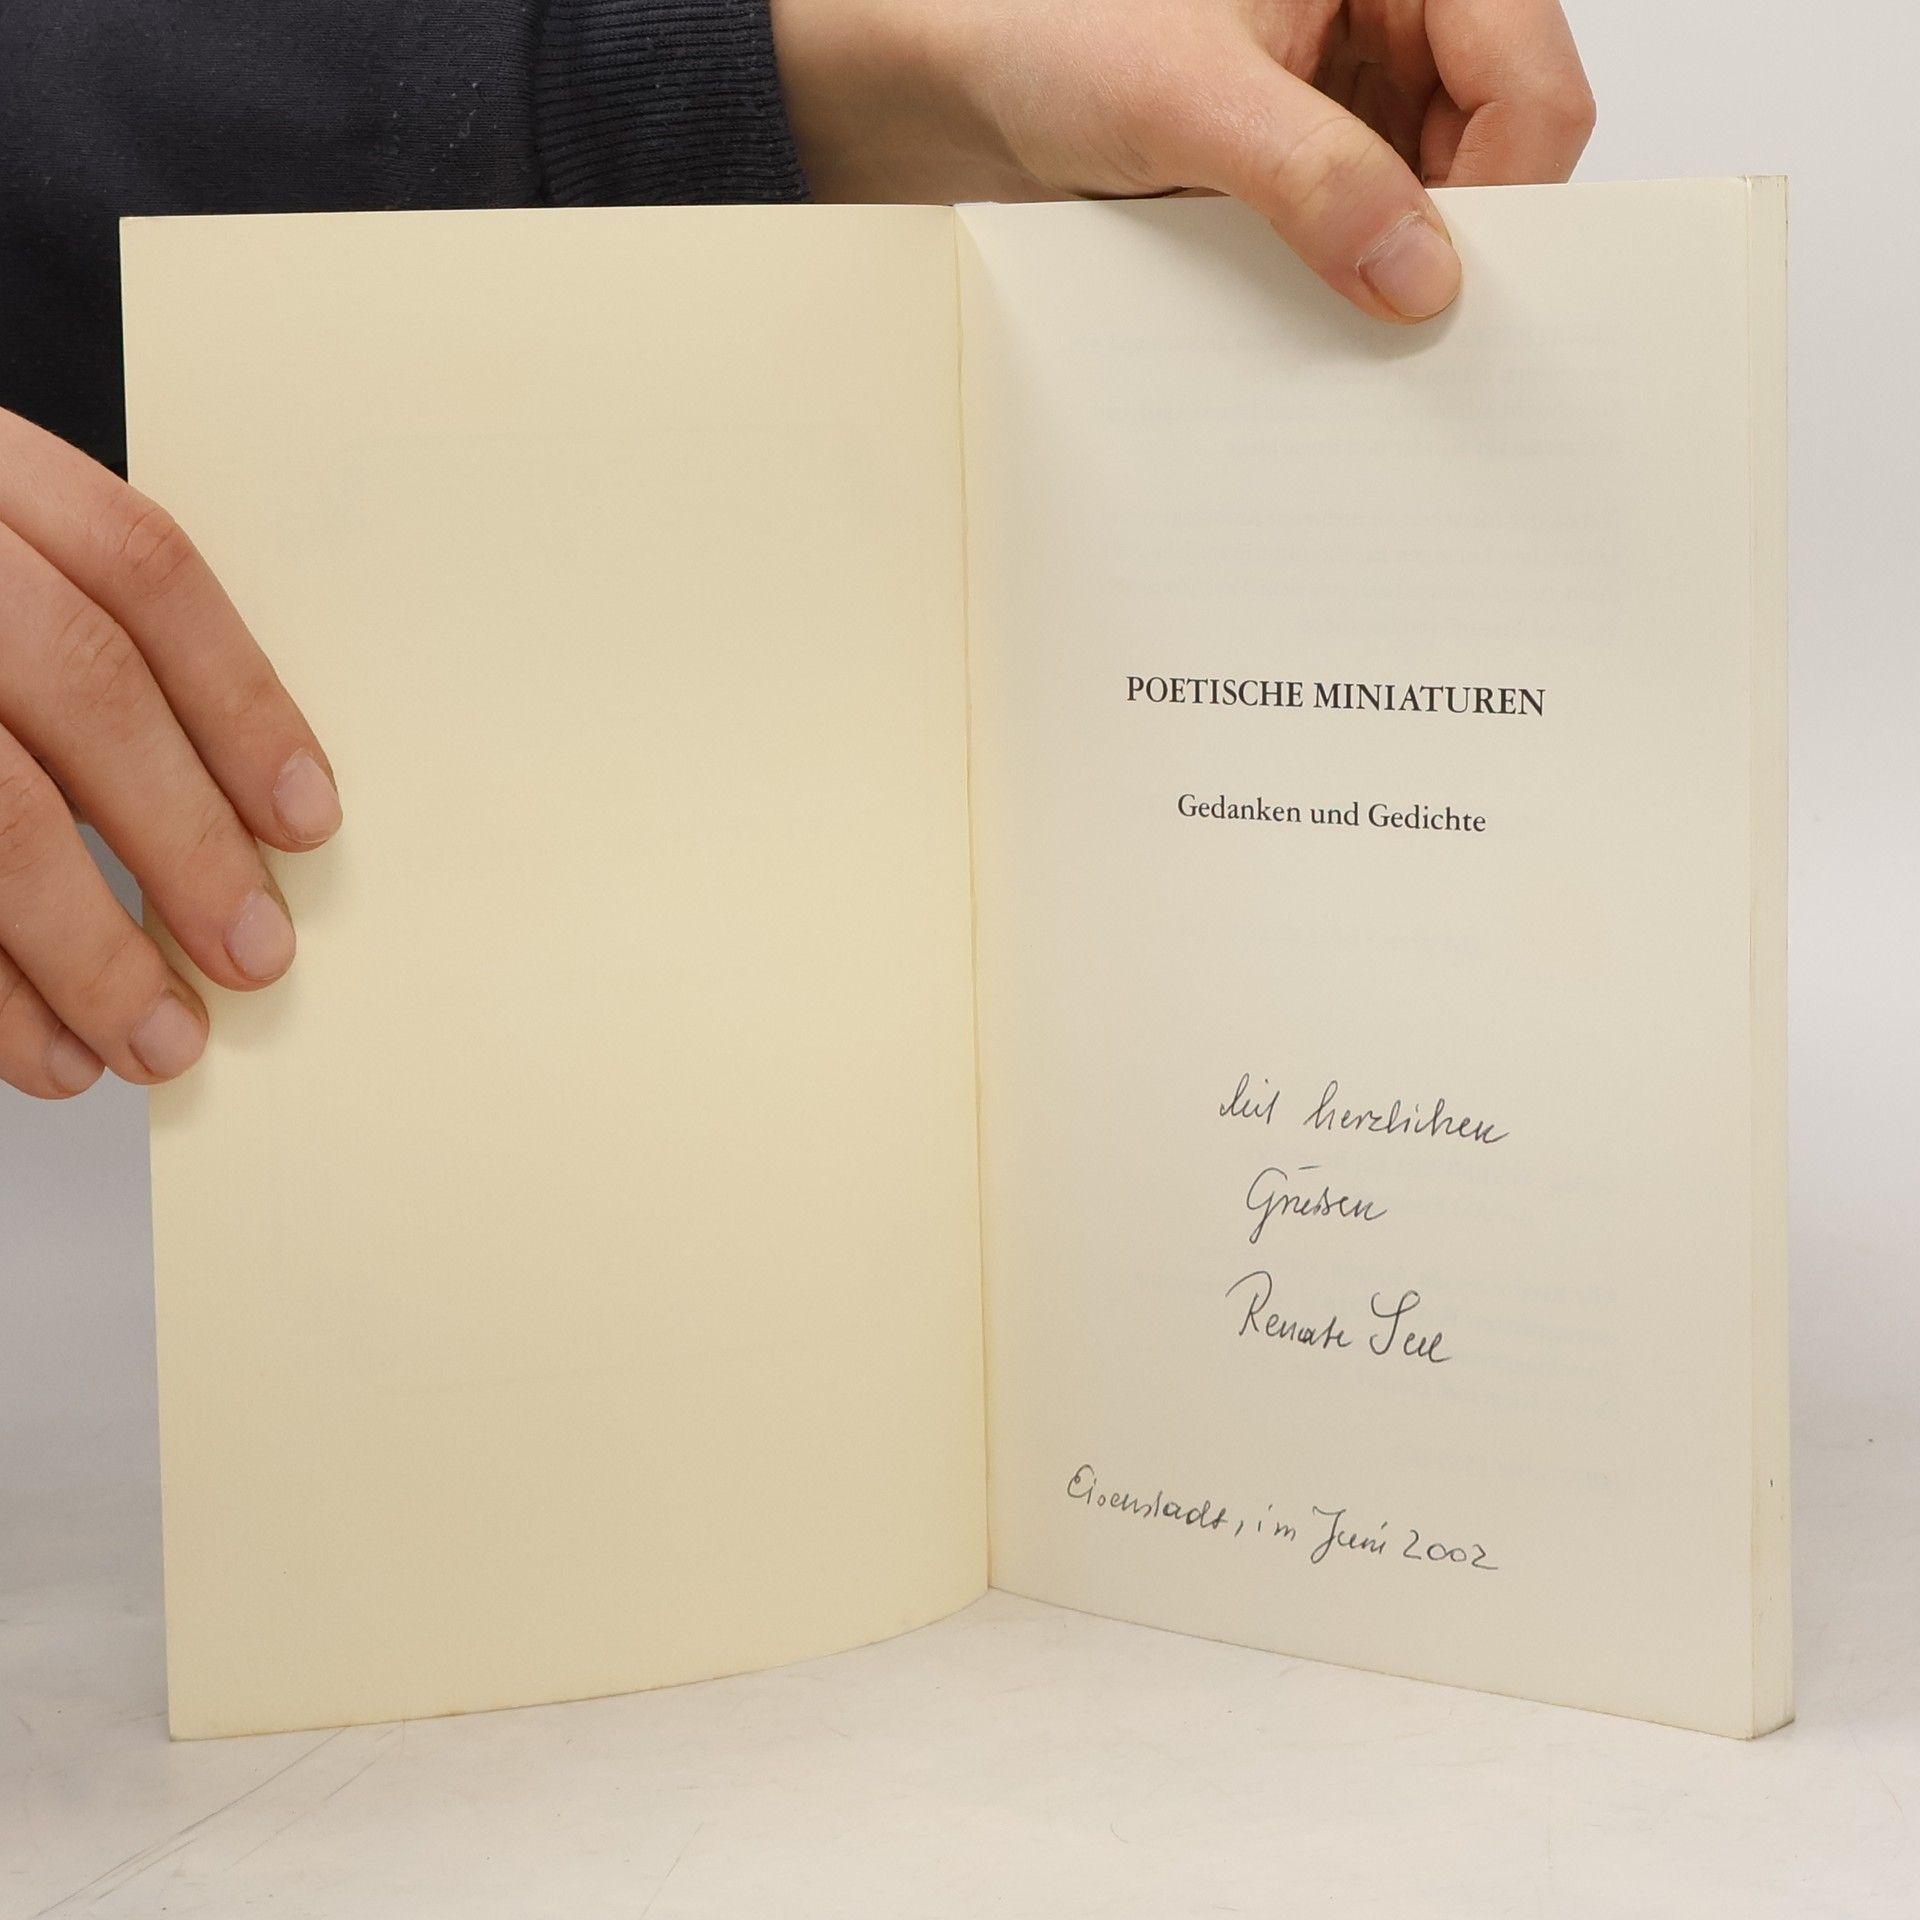 POETISCHE MINIATUREN
Gedanken und Gedichte
Mit herzlichen
Grüßen
Renate
Eisenstadt, im Juni 2002